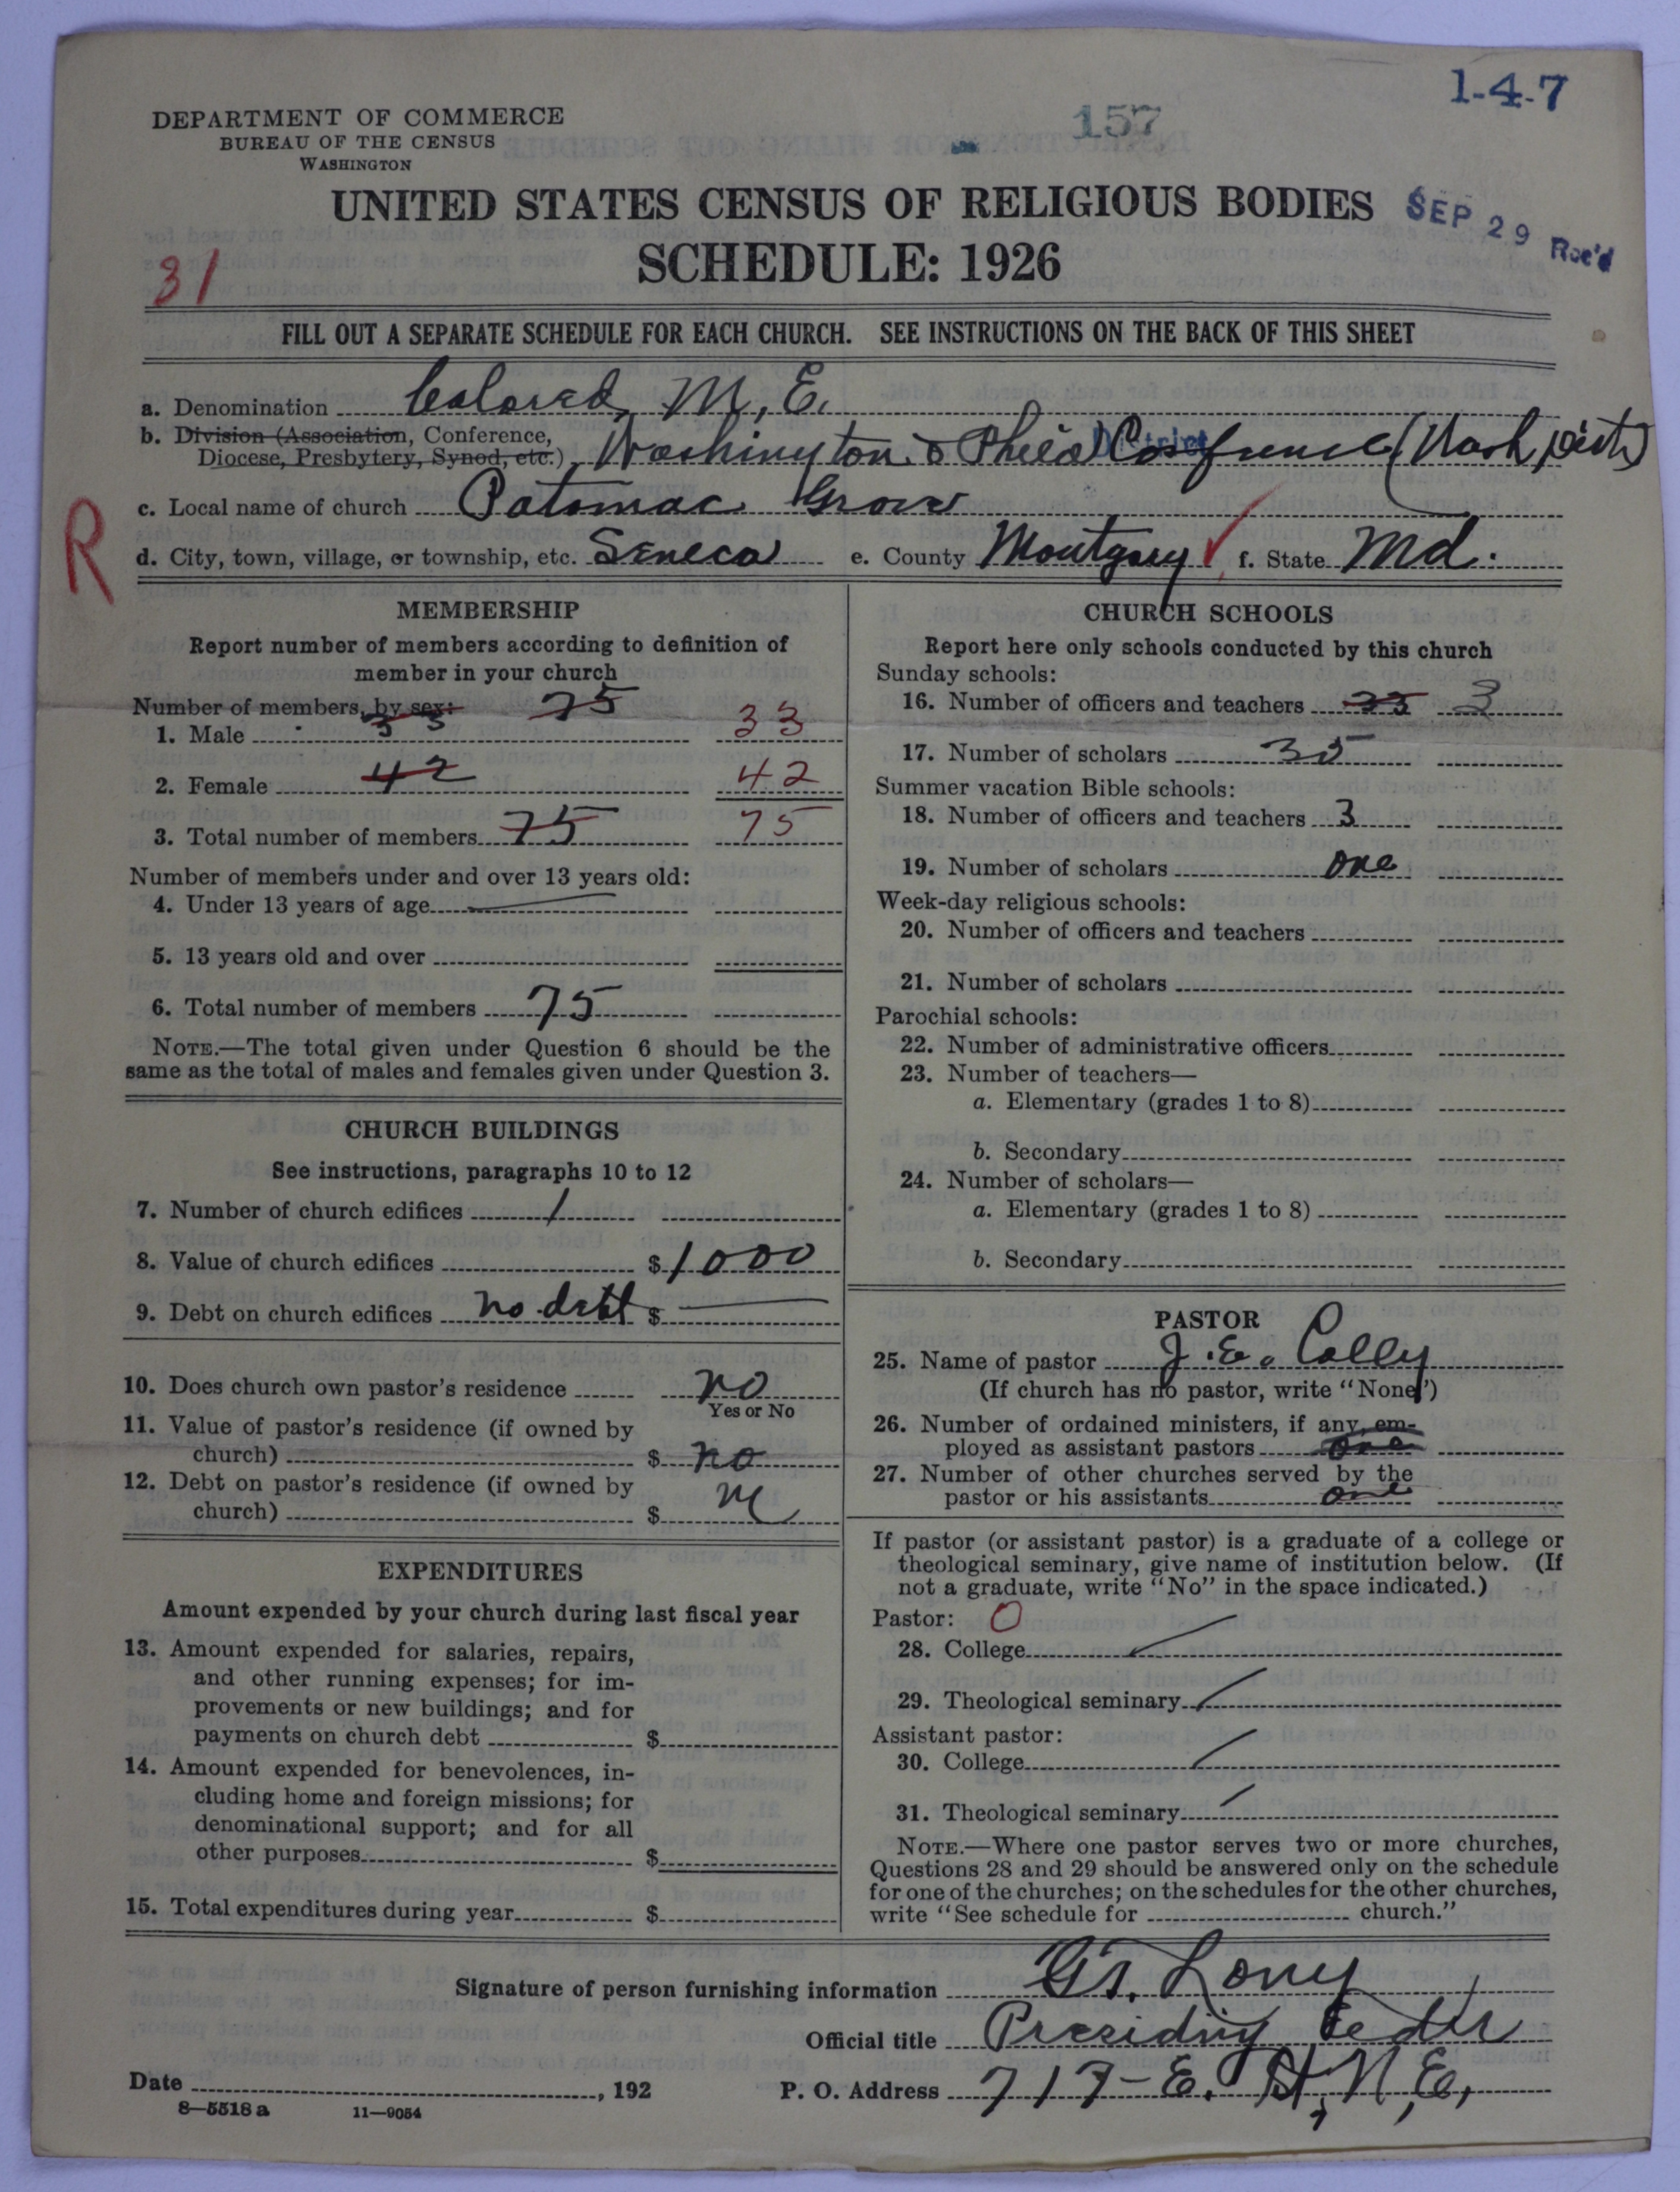 1-4-7
157
DEPARTMENT OF COMMERCE
BUREAU OF THE CENSUS
WASHINGTON
UNITED STATES CENSUS OF RELIGIOUS BODIES
SEP 29 Rec'd
SCHEDULE: 1926
31
FILL OUT A SEPARATE SCHEDULE FOR EACH CHURCH. SEE INSTRUCTIONS ON THE BACK OF THIS SHEET
a. Denomination Colored M, E.
b. Division (Association, Conference,
Diocese, Presbytery, Synod, etc.) Washington & Phila District Conference (Wash, Dist)
c. Local name of church Potomac Grove
R
d. City, town, village, or township, etc. Seneca e. County Montgery f. State Md.
MEMBERSHIP
Report number of members according to definition of
member in your church
Number of members, by sex: 75
1. Male 33 33
2. Female 42 42
3. Total number of members 75 75
Number of members under and over 13 years old:
4. Under 13 years of age
5. 13 years old and over
6. Total number of members 75
NOTE.—The total given under Question 6 should be the
same as the total of males and females given under Question 3.
CHURCH BUILDINGS
See instructions, paragraphs 10 to 12
7. Number of church edifices 1
8. Value of church edifices $ 1000
9. Debt on church edifices no debt $
10. Does church own pastor's residence no
Yes or No
11. Value of pastor's residence (if owned by
church) $ no
12. Debt on pastor's residence (if owned by
church) $
EXPENDITURES
Amount expended by your church during last fiscal year
13. Amount expended for salaries, repairs,
and other running expenses; for im-
provements or new buildings; and for
payments on church debt $
14. Amount expended for benevolences, in-
cluding home and foreign missions; for
denominational support; and for all
other purposes $
15. Total expenditures during year $
CHURCH SCHOOLS
Report here only schools conducted by this church
Sunday schools:
16. Number of officers and teachers 35 3
17. Number of scholars 35
Summer vacation Bible schools:
18. Number of officers and teachers 3
19. Number of scholars one
Week-day religious schools:
20. Number of officers and teachers
21. Number of scholars
Parochial schools:
22. Number of administrative officers
23. Number of teachers—
a. Elementary (grades 1 to 8)
b. Secondary
24. Number of scholars—
a. Elementary (grades 1 to 8)
b. Secondary
PASTOR
25. Name of pastor J. E. Colley
(If church has no pastor, write "None")
26. Number of ordained ministers, if any, em-
ployed as assistant pastors one
27. Number of other churches served by the
pastor or his assistants one
If pastor (or assistant pastor) is a graduate of a college or
theological seminary, give name of institution below. (If
not a graduate, write "No" in the space indicated.)
Pastor: O
28. College
29. Theological seminary
Assistant pastor:
30. College
31. Theological seminary
NOTE.—Where one pastor serves two or more churches,
Questions 28 and 29 should be answered only on the schedule
for one of the churches; on the schedules for the other churches,
write "See schedule for church."
Signature of person furnishing information Long
Official title Presiding Eeder
Date , 192
P. O. Address 717-E. St, N, E,
8—5518 a 11—9054